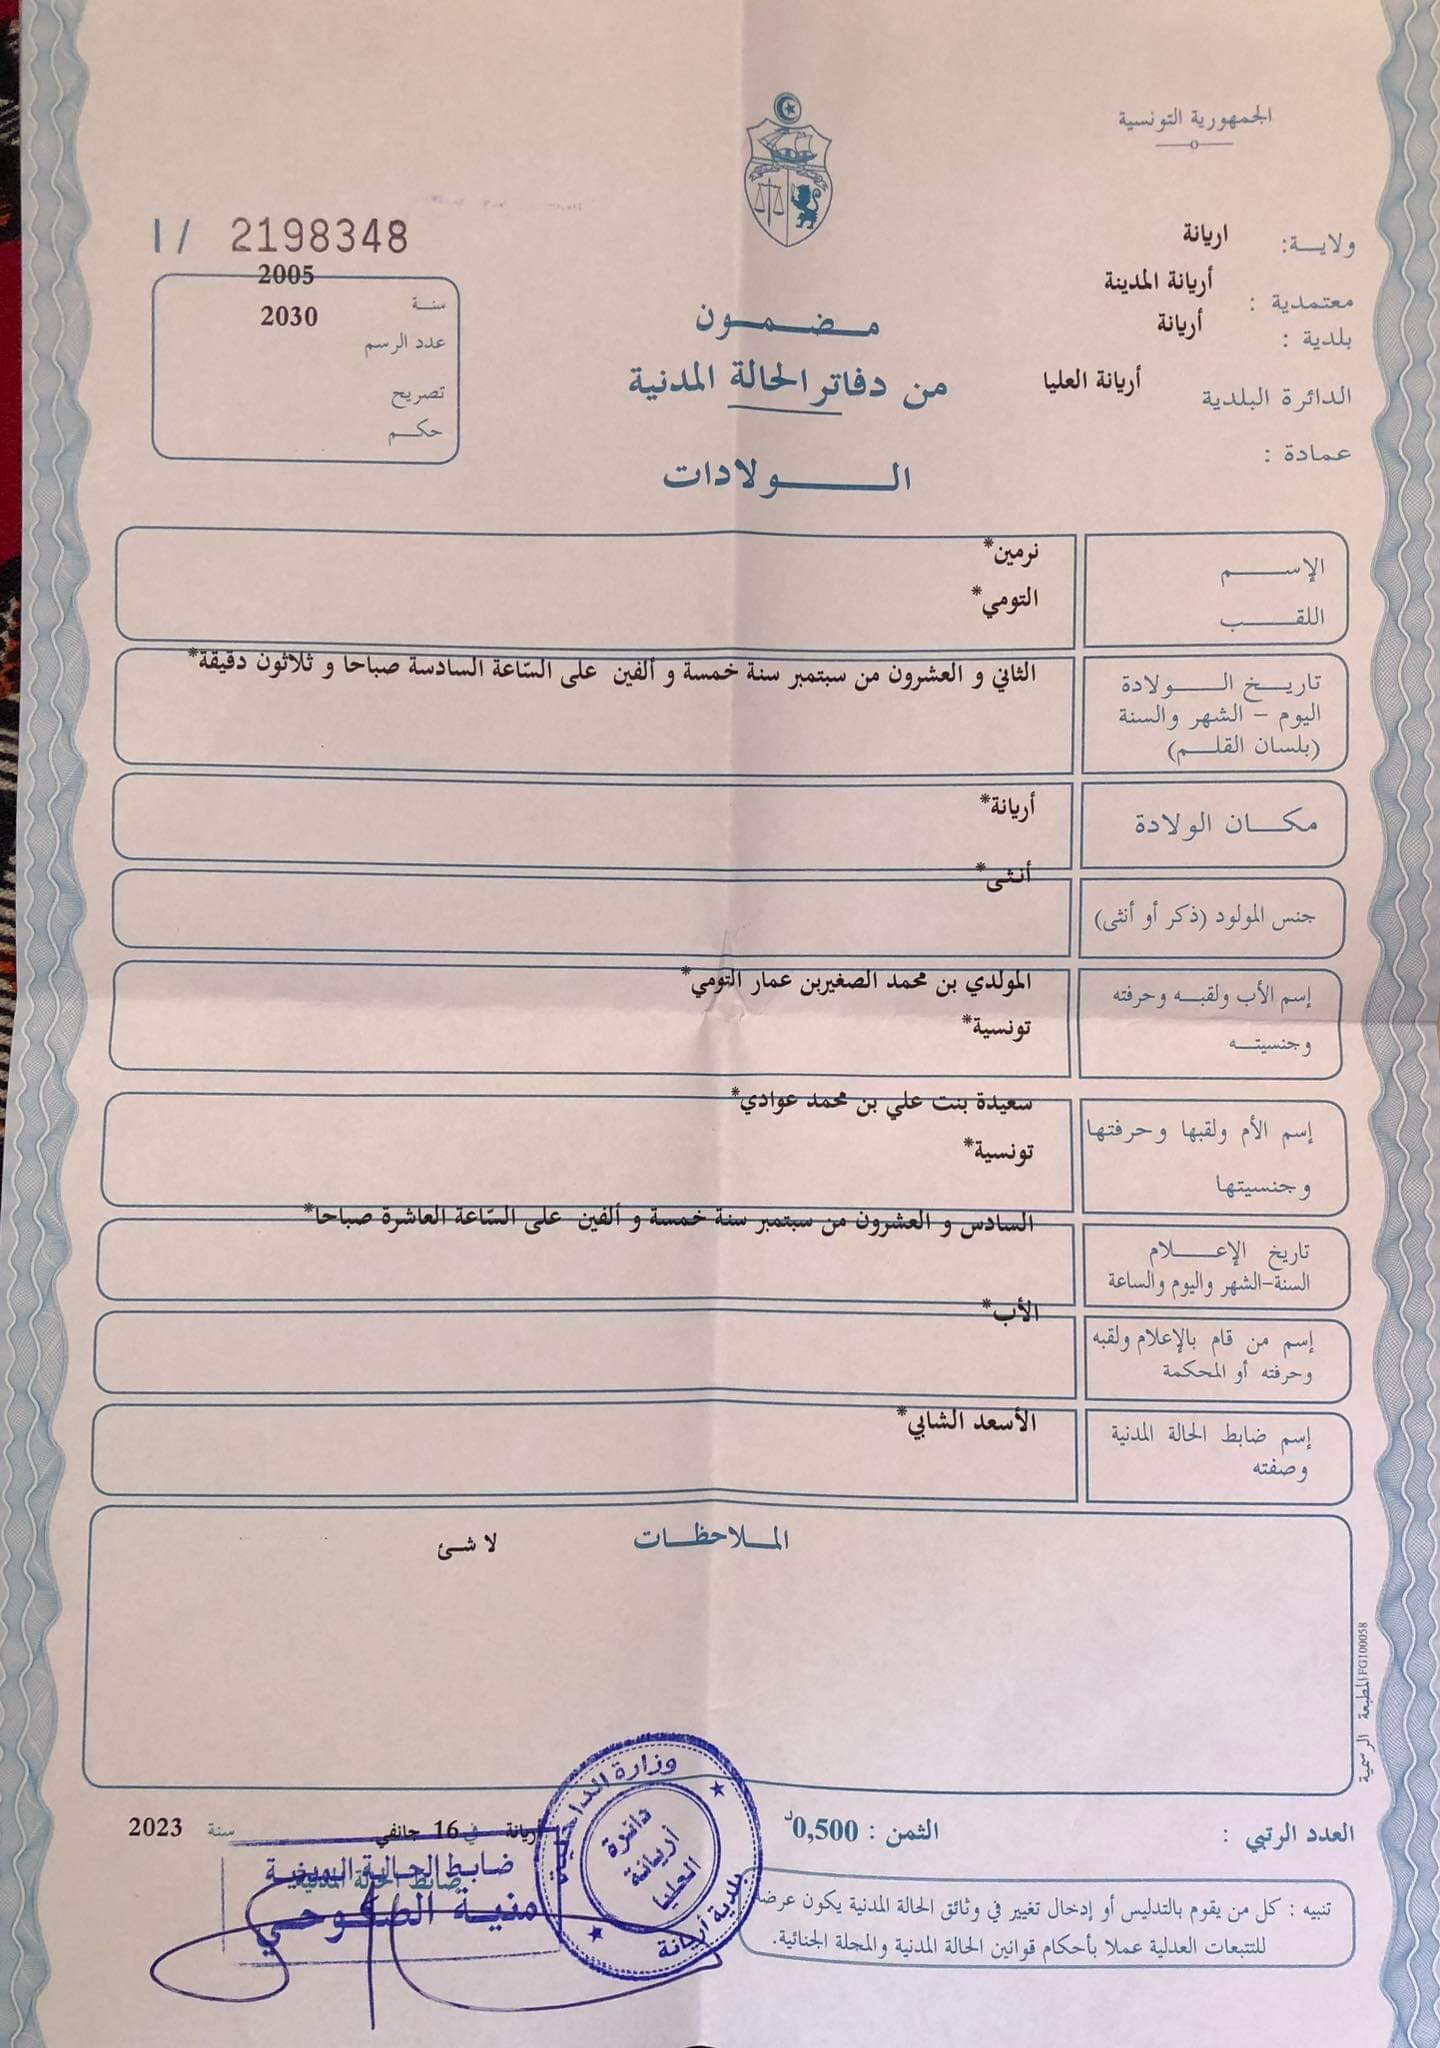 الجمهورية التونسية
ولاية: اريانة
معتمدية : أريانة المدينة
بلدية : أريانة
الدائرة البلدية أريانة العليا
عمادة :
I / 2198348
سنة 2005
عدد الرسم 2030
تصريح
حكم
مضمون
من دفاتر الحالة المدنية
الولادات
الإسم نرمين*
اللقب التومي*
تاريخ الولادة الثاني و العشرون من سبتمبر سنة خمسة و ألفين على السّاعة السادسة صباحا و ثلاثون دقيقة*
اليوم - الشهر والسنة
(بلسان القلم)
مكان الولادة أريانة*
جنس المولود (ذكر أو أنثى) أنثى*
إسم الأب ولقبه وحرفته المولدي بن محمد الصغيربن عمار التومي*
وجنسيته تونسية*
إسم الأم ولقبها وحرفتها سعيدة بنت علي بن محمد عوادي*
وجنسيتها تونسية*
تاريخ الإعلام السادس و العشرون من سبتمبر سنة خمسة و ألفين على السّاعة العاشرة صباحا*
السنة-الشهر واليوم والساعة
إسم من قام بالإعلام ولقبه الأب*
وحرفته أو المحكمة
إسم ضابط الحالة المدنية الأسعد الشابي*
وصفته
الملاحظات لا شئ
المطبعة الرسمية FG100058
العدد الرتبي :
الثمن : 0,500د
أريانة في 16 جانفي سنة 2023
ضابط الحالة المدنية
ضابط الحالة المدنية
وزارة الداخلية
بلدية أريانة
دائرة
أريانة
العليا
تنبيه : كل من يقوم بالتدليس أو إدخال تغيير في وثائق الحالة المدنية يكون عرضة
للتتبعات العدلية عملا بأحكام قوانين الحالة المدنية والمجلة الجنائية.